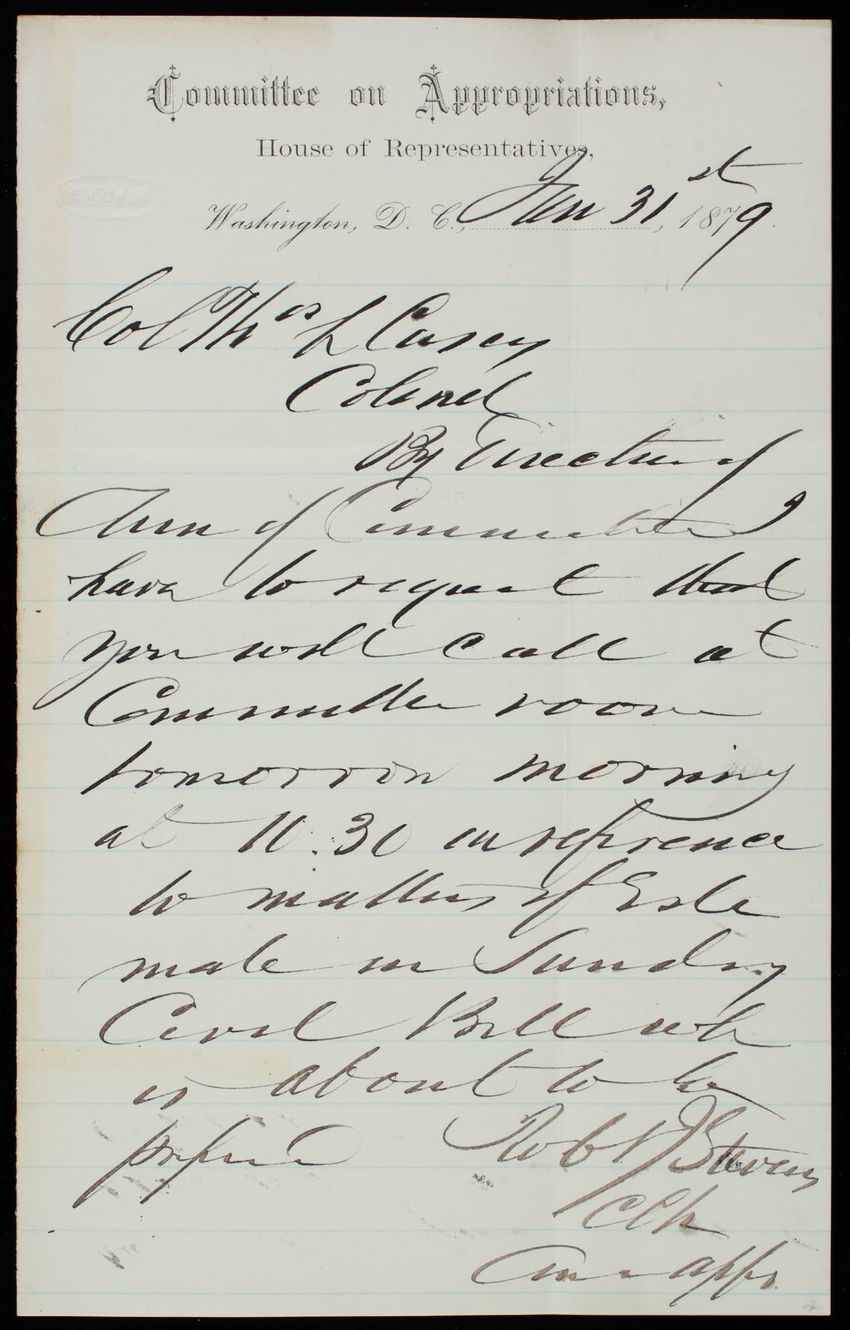 Committee on Appropriations,
House of Representatives,
Washington, D. C., Jan 31st, 1879.
Col Thos L Casey
Colonel
By Direction of
Chrm of Committee I
have to request that
you will call at
Committee room
tomorrow morning
at 10:30 in reference
to matters of Esti
mate in Sundry
Civil Bill wh
is about to be
prepared Robt J Stevens
Clk
Com apps.